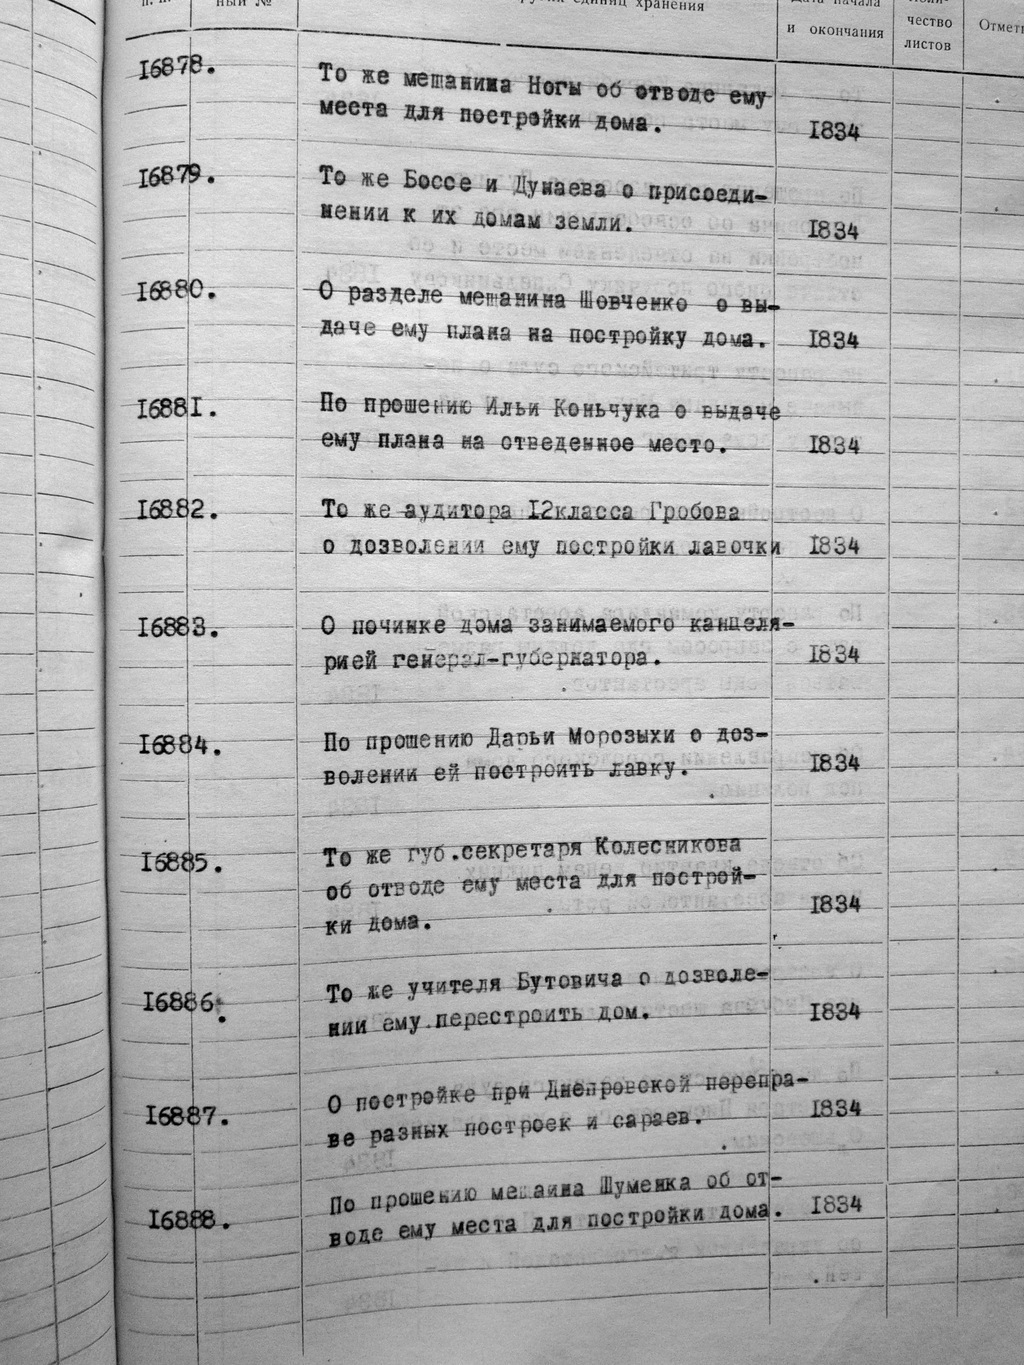 ный №
единиц хранения
Дата начала
и окончания
чество
листов
16878.
То же мещанина Ногы об отводе ему
места для постройки дома.
1834
16879.
То же Боссе и Дунаева о присоеди-
нении к их домам земли.
1834
16880.
О разделе мещанина Шовченко о вы-
даче ему плана на постройку дома.
1834
16881.
По прошению Ильи Коньчука о выдаче
ему плана на отведенное место.
1834
16882.
То же аудитора 12класса Гробова
о дозволении ему постройки лавочки
1834
16883.
О починке дома занимаемого канцеля-
рией генерал-губернатора.
1834
16884.
По прошению Дарьи Морозыхи о доз-
волении ей построить лавку.
1834
16885.
То же губ.секретаря Колесникова
об отводе ему места для построй-
ки дома.
1834
16886.
То же учителя Бутовича о дозволе-
нии ему перестроить дом.
1834
16887.
О постройке при Днепровской перепра-
ве разных построек и сараев.
1834
16888.
По прошению мещанина Шуменка об от-
воде ему места для постройки дома.
1834